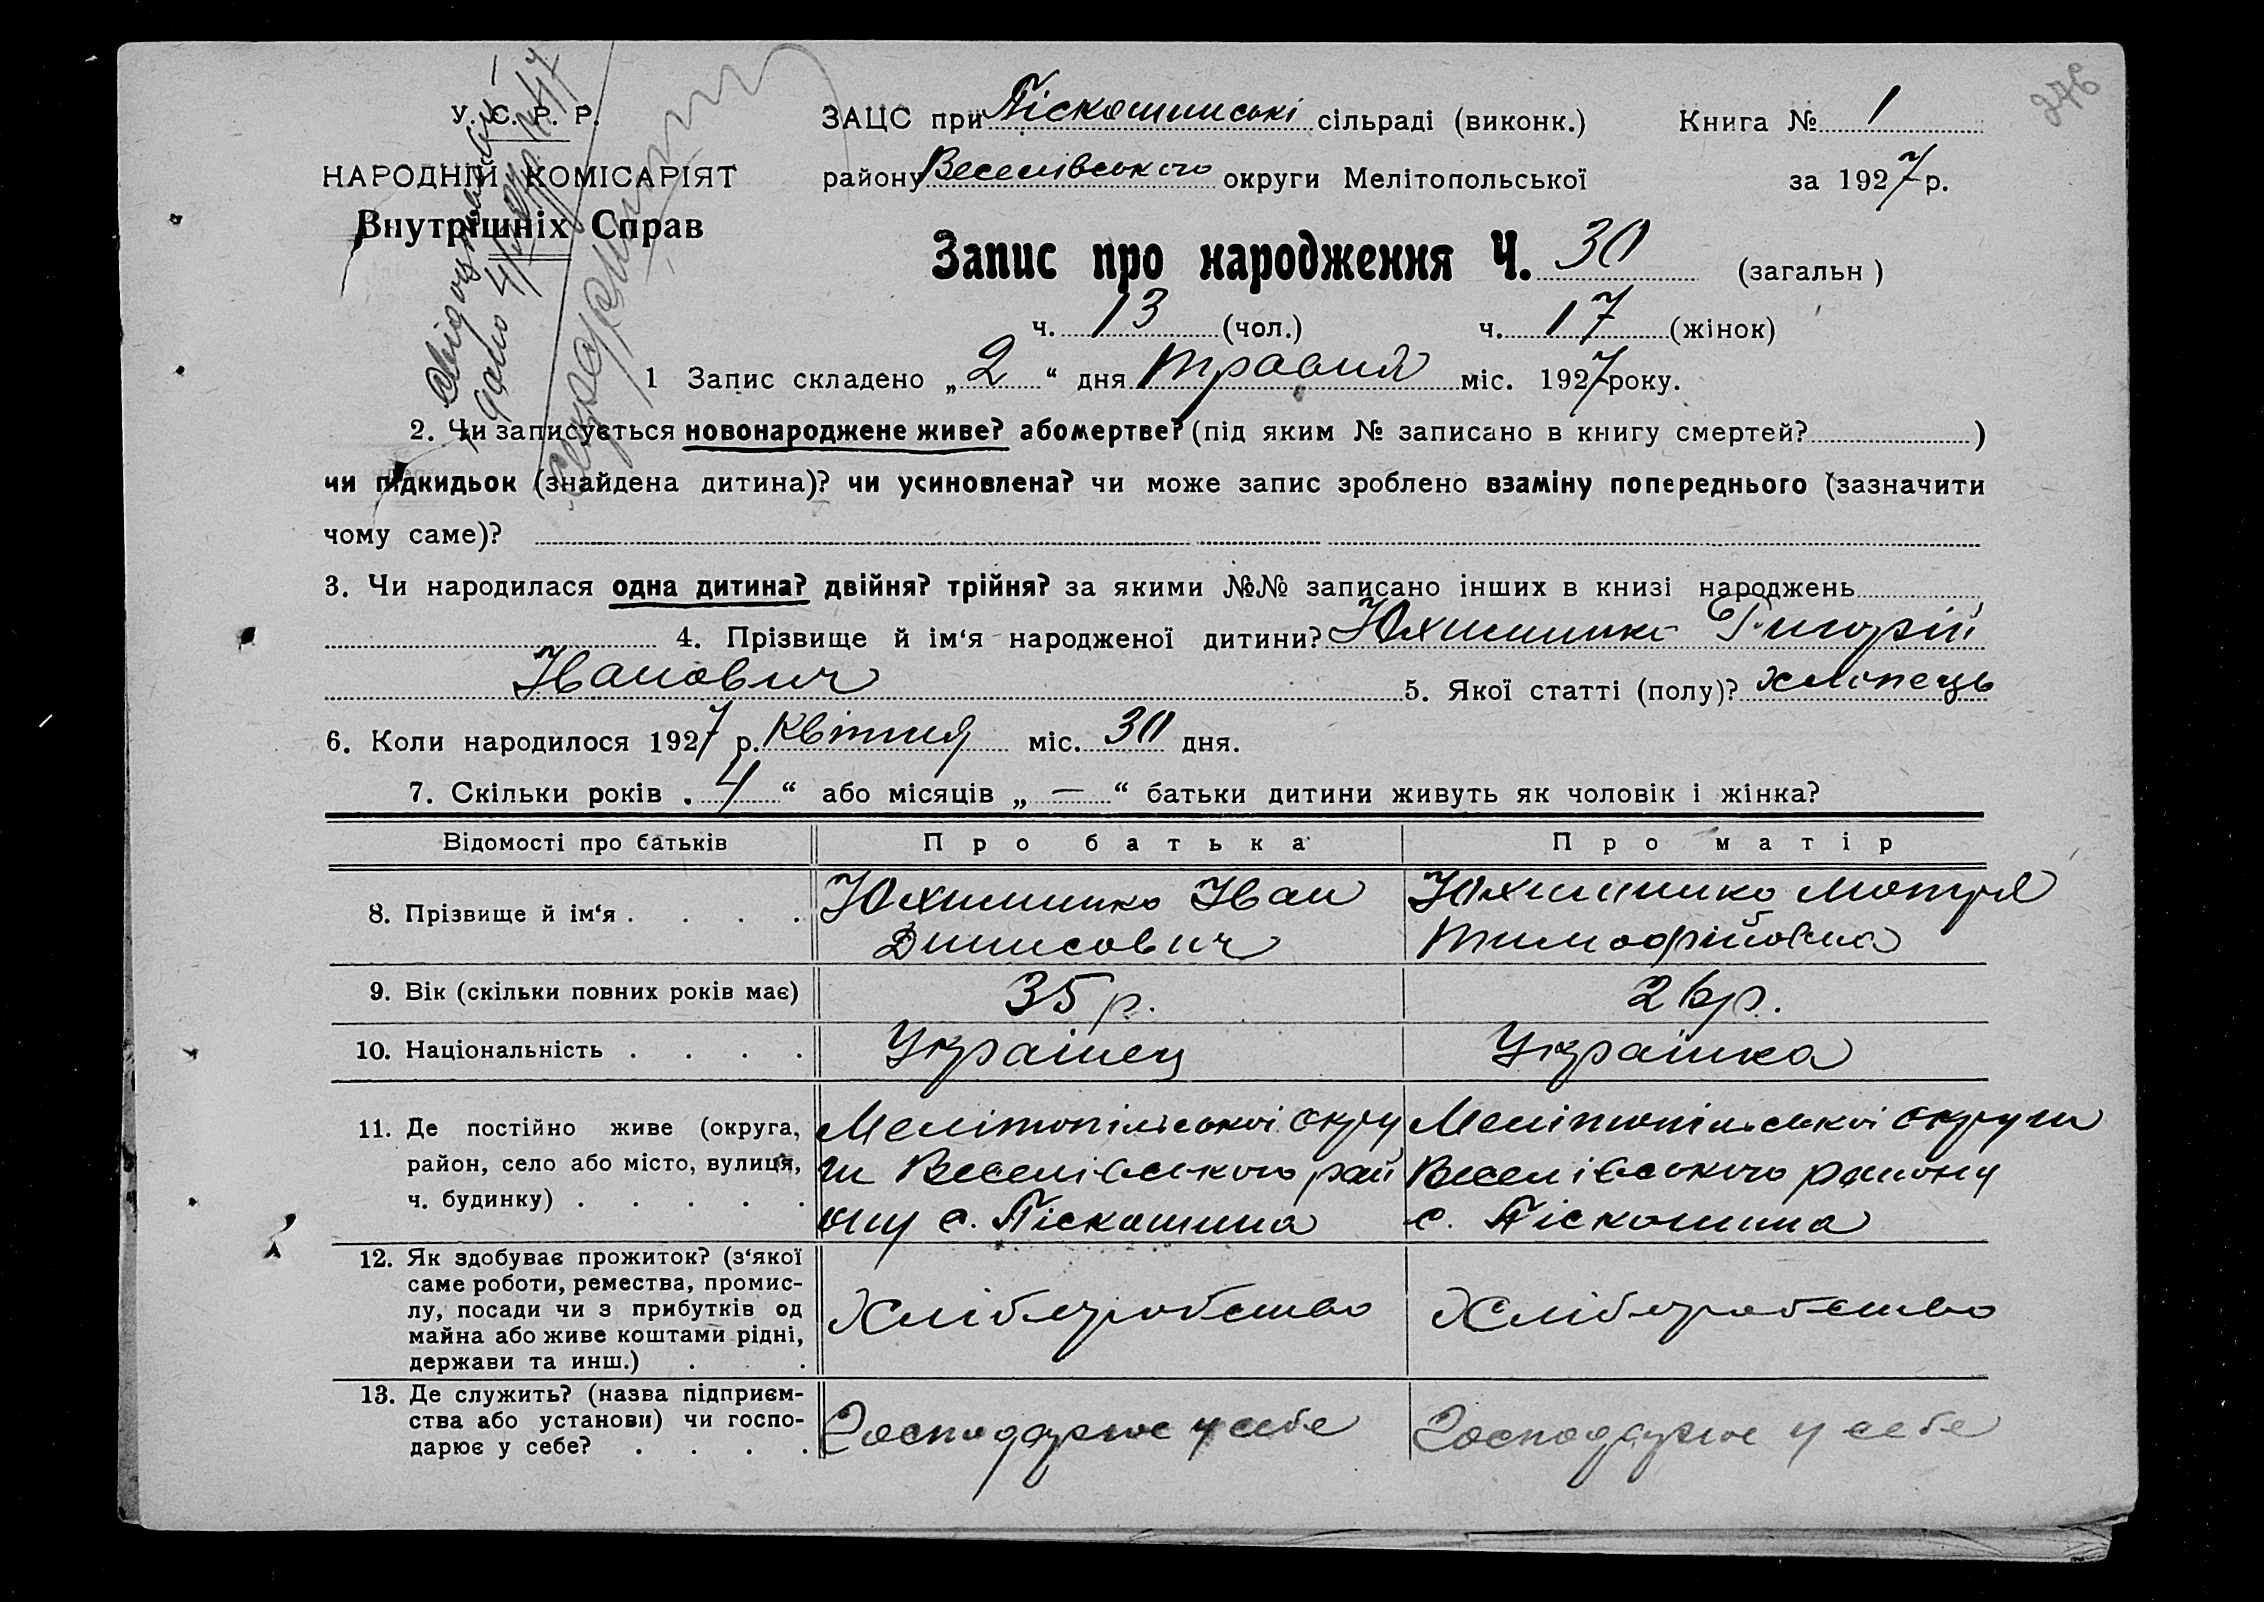 246
У. С. Р. Р.
НАРОДНІЙ КОМІСАРІЯТ
Внутрішніх Справ
ЗАЦС при Піскошинські сільраді (виконк.) Книга № 1
району Веселівського округи Мелітопольської за 1927 р.
Запис про народження Ч. 30 (загальн)
ч. 13 (чол.) ч. 17 (жінок)
1 Запис складено „2“ дня травня міс. 1927 року.
2. Чи записується новонароджене живе? або мертве? (під яким № записано в книгу смертей? )
чи підкидьок (знайдена дитина)? чи усиновлена? чи може запис зроблено взаміну попереднього (зазначити
чому саме)?
3. Чи народилася одна дитина? двійня? трійня? за якими №№ записано інших в книзі народжень
4. Прізвище й ім‘я народженої дитини? Юхименко Григорій
Іванович 5. Якої статті (полу)? хлопець
6. Коли народилося 1927 р. квітня міс. 30 дня.
7. Скільки років „4“ або місяців „—“ батьки дитини живуть як чоловік і жінка?
Відомості про батьків Про батька Про матір
8. Прізвище й ім‘я . . . . Юхименко Іван Юхименко Мотря
Динисович Тимофійовна
9. Вік (скільки повних років має) 35 р. 26 р.
10. Національність . . . . Українец Українка
11. Де постійно живе (округа, Мелітопільської окру Мелітопільської округи
район, село або місто, вулиця, ги Веселівського рай Веселівського району
ч. будинку) . . . . . ону с. Піскошина с. Піскошина
12. Як здобуває прожиток? (з‘якої
саме роботи, ремества, промис-
лу, посади чи з прибутків од Хліборобство Хліборобство
майна або живе коштами рідні,
держави та инш.) . . .
13. Де служить? (назва підприєм-
ства або установи) чи госпо- Господарює у себе Господарює у себе
дарює у себе? . . . .